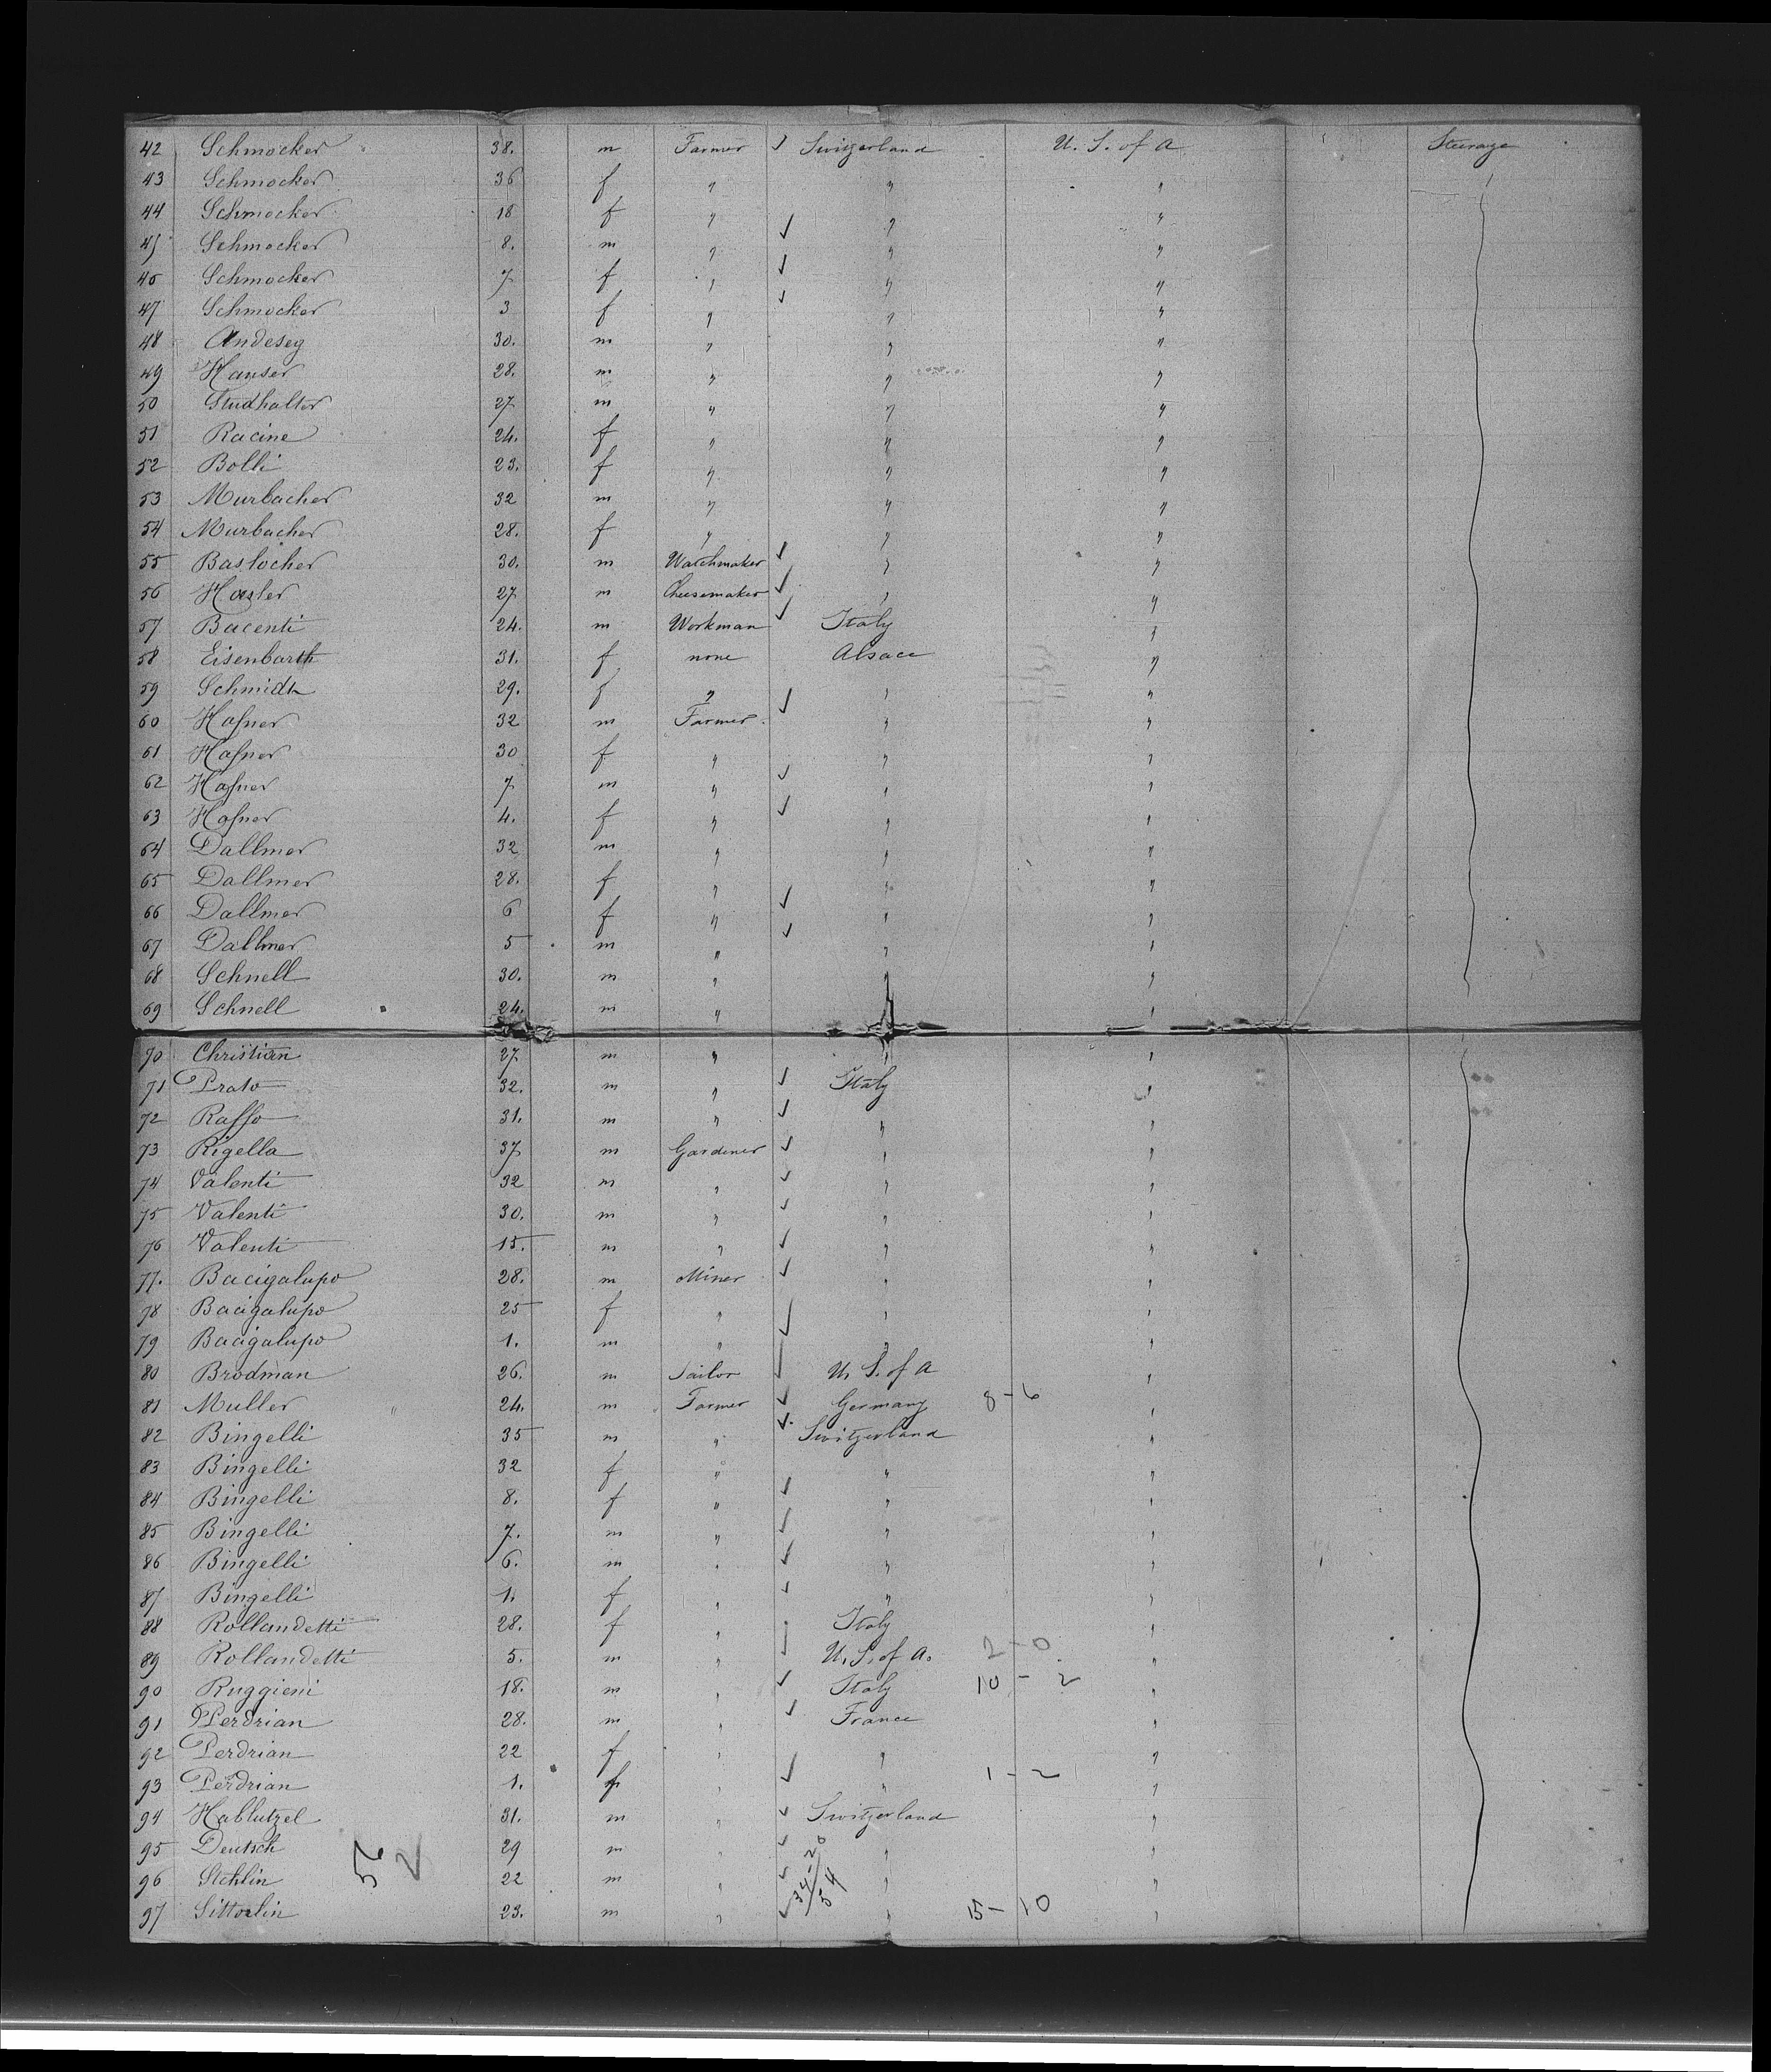 42 Schmocker 38. m Farmer ✓ Switzerland U. S. of A Steerage
43 Schmocker 36 f " " "
44 Schmocker 18 f " ✓ " "
45 Schmocker 8. m " ✓ " "
46 Schmocker 7 f " ✓ " "
47 Schmocker 3 f " " "
48 Andeseg 30. m " " "
49 Hauser 28. m " " "
50 Studhalter 27 m " " "
51 Racine 24. f " " "
52 Bolli 23. f " " "
53 Murbacher 32 m " " "
54 Murbacher 28. f " " "
55 Baslocher 30. m Watchmaker ✓ " "
56 Hasler 27 m Cheesemaker ✓ " "
57 Bacenti 24. m Workman ✓ Italy "
58 Eisenbarth 31. f none Alsace "
59 Schmidt 29. f " ✓ " "
60 Hafner 32 m Farmer. " "
61 Hafner 30 f " " "
62 Hafner 7 m " ✓ " "
63 Hafner 4. f " ✓ " "
64 Dallmer 32 m " " "
65 Dallmer 28. f " " "
66 Dallmer 6 f " ✓ " "
67 Dallmer 5 m " ✓ " "
68 Schnell 30. m " " "
69 Schnell 24. m " "
70 Christian 27 m " " "
71 Prato 32. m " ✓ Italy "
72 Raffo 31. m " ✓ " "
73 Rigella 37 m Gardener ✓ " "
74 Valenti 32 m " ✓ " "
75 Valenti 30. m " ✓ " "
76 Valenti 15. m " ✓ " "
77. Bacigalupo 28. m Miner ✓ " "
78 Bacigalupo 25 f " " "
79 Bacigalupo 1. m " ✓ " "
80 Brodman 26. m Sailor ✓ U. S. of A "
81 Muller 24. m Farmer ✓ Germany 8-6 "
82 Bingelli 35 m " ✓ Switzerland "
83 Bingelli 32 f " " "
84 Bingelli 8. f " ✓ " "
85 Bingelli 7. m " ✓ " "
86 Bingelli 6. m " ✓ " "
87 Bingelli 1. f " ✓ " "
88 Rollandetti 28. f " Italy "
89 Rollandetti 5. m " ✓ U. S. of A. 2-0 "
90 Ruggieni 18. m " ✓ Italy 10-2 "
91 Perdrian 28. m " ✓ France "
92 Perdrian 22 f " " "
93 Perdrian 1. f " ✓ " 1-2 "
94 Hablutzel 31. m " ✓ Switzerland "
95 Deutsch 29 m " ✓ " "
96 Stehlin 22 m " ✓ " "
97 Sittorlin 23. m " ✓ " 15-10 "
56
2
34-20
54